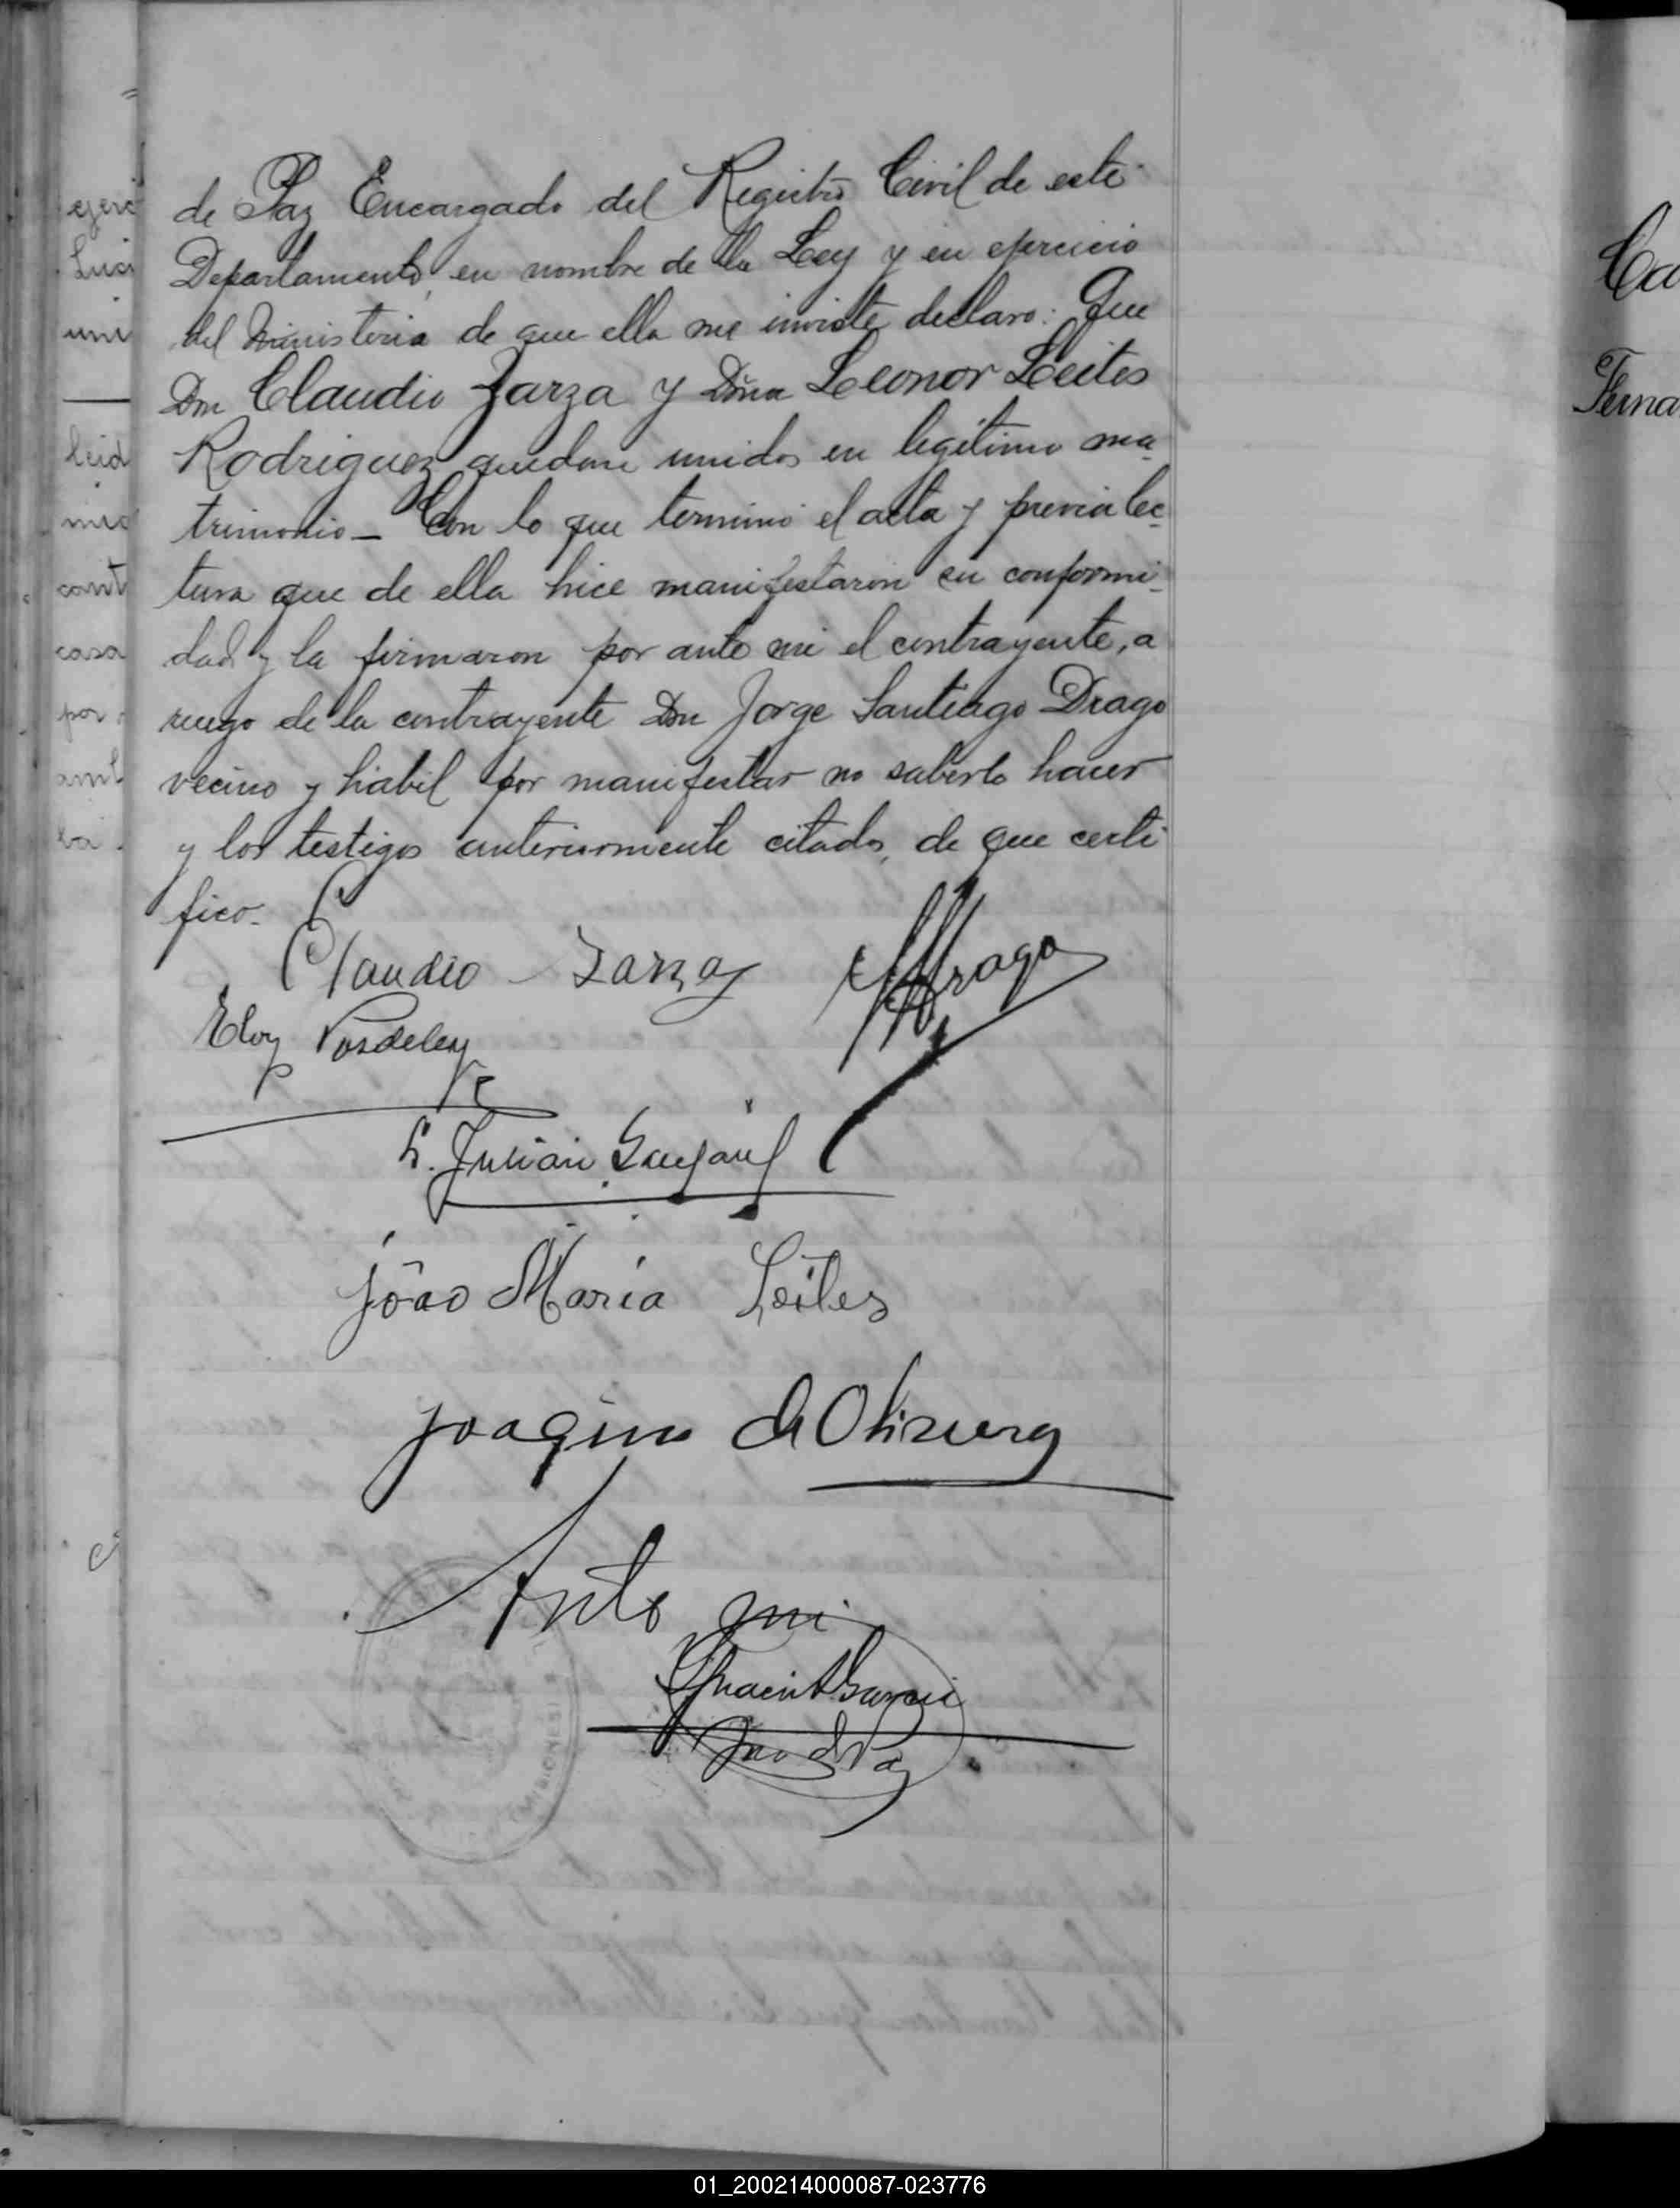 de Paz Encargado del Registro Civil de este
Departamento, en nombre de la Ley y en ejercicio
del Ministerio de que ella me inviste declaro: Que
Don Claudio Zarza y Doña Leonor Leites
Rodriguez quedan unidos en legítimo ma
trimonio — Con lo que terminó el acta y previa lec
tura que de ella hice manifestaron su conformi
dad y la firmaron por ante mi el contrayente, a
ruego de la contrayente Don Jorge Santiago Drago
vecino y habil por manifestar no saberlo hacer
y los testigos anteriormente citados, de que certi
fico.
Claudio Zarza
Drago
Eloy
S. Julian
João Maria Leites
Joaquin de Olivera
Ante mi
Garcia
Juez de Paz
ejerc
Luci
uni
leid
mid
cont
casa
por
amb
ba
Ca
Ferna
MISIONES
01_200214000087-023776